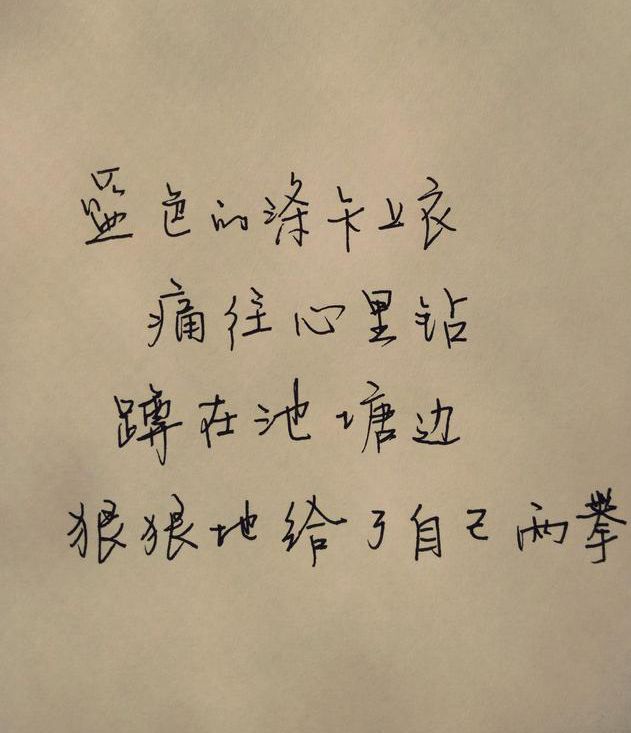 蓝色的涤卡上衣
痛往心里钻
蹲在池塘边
狠狠地给了自己两拳